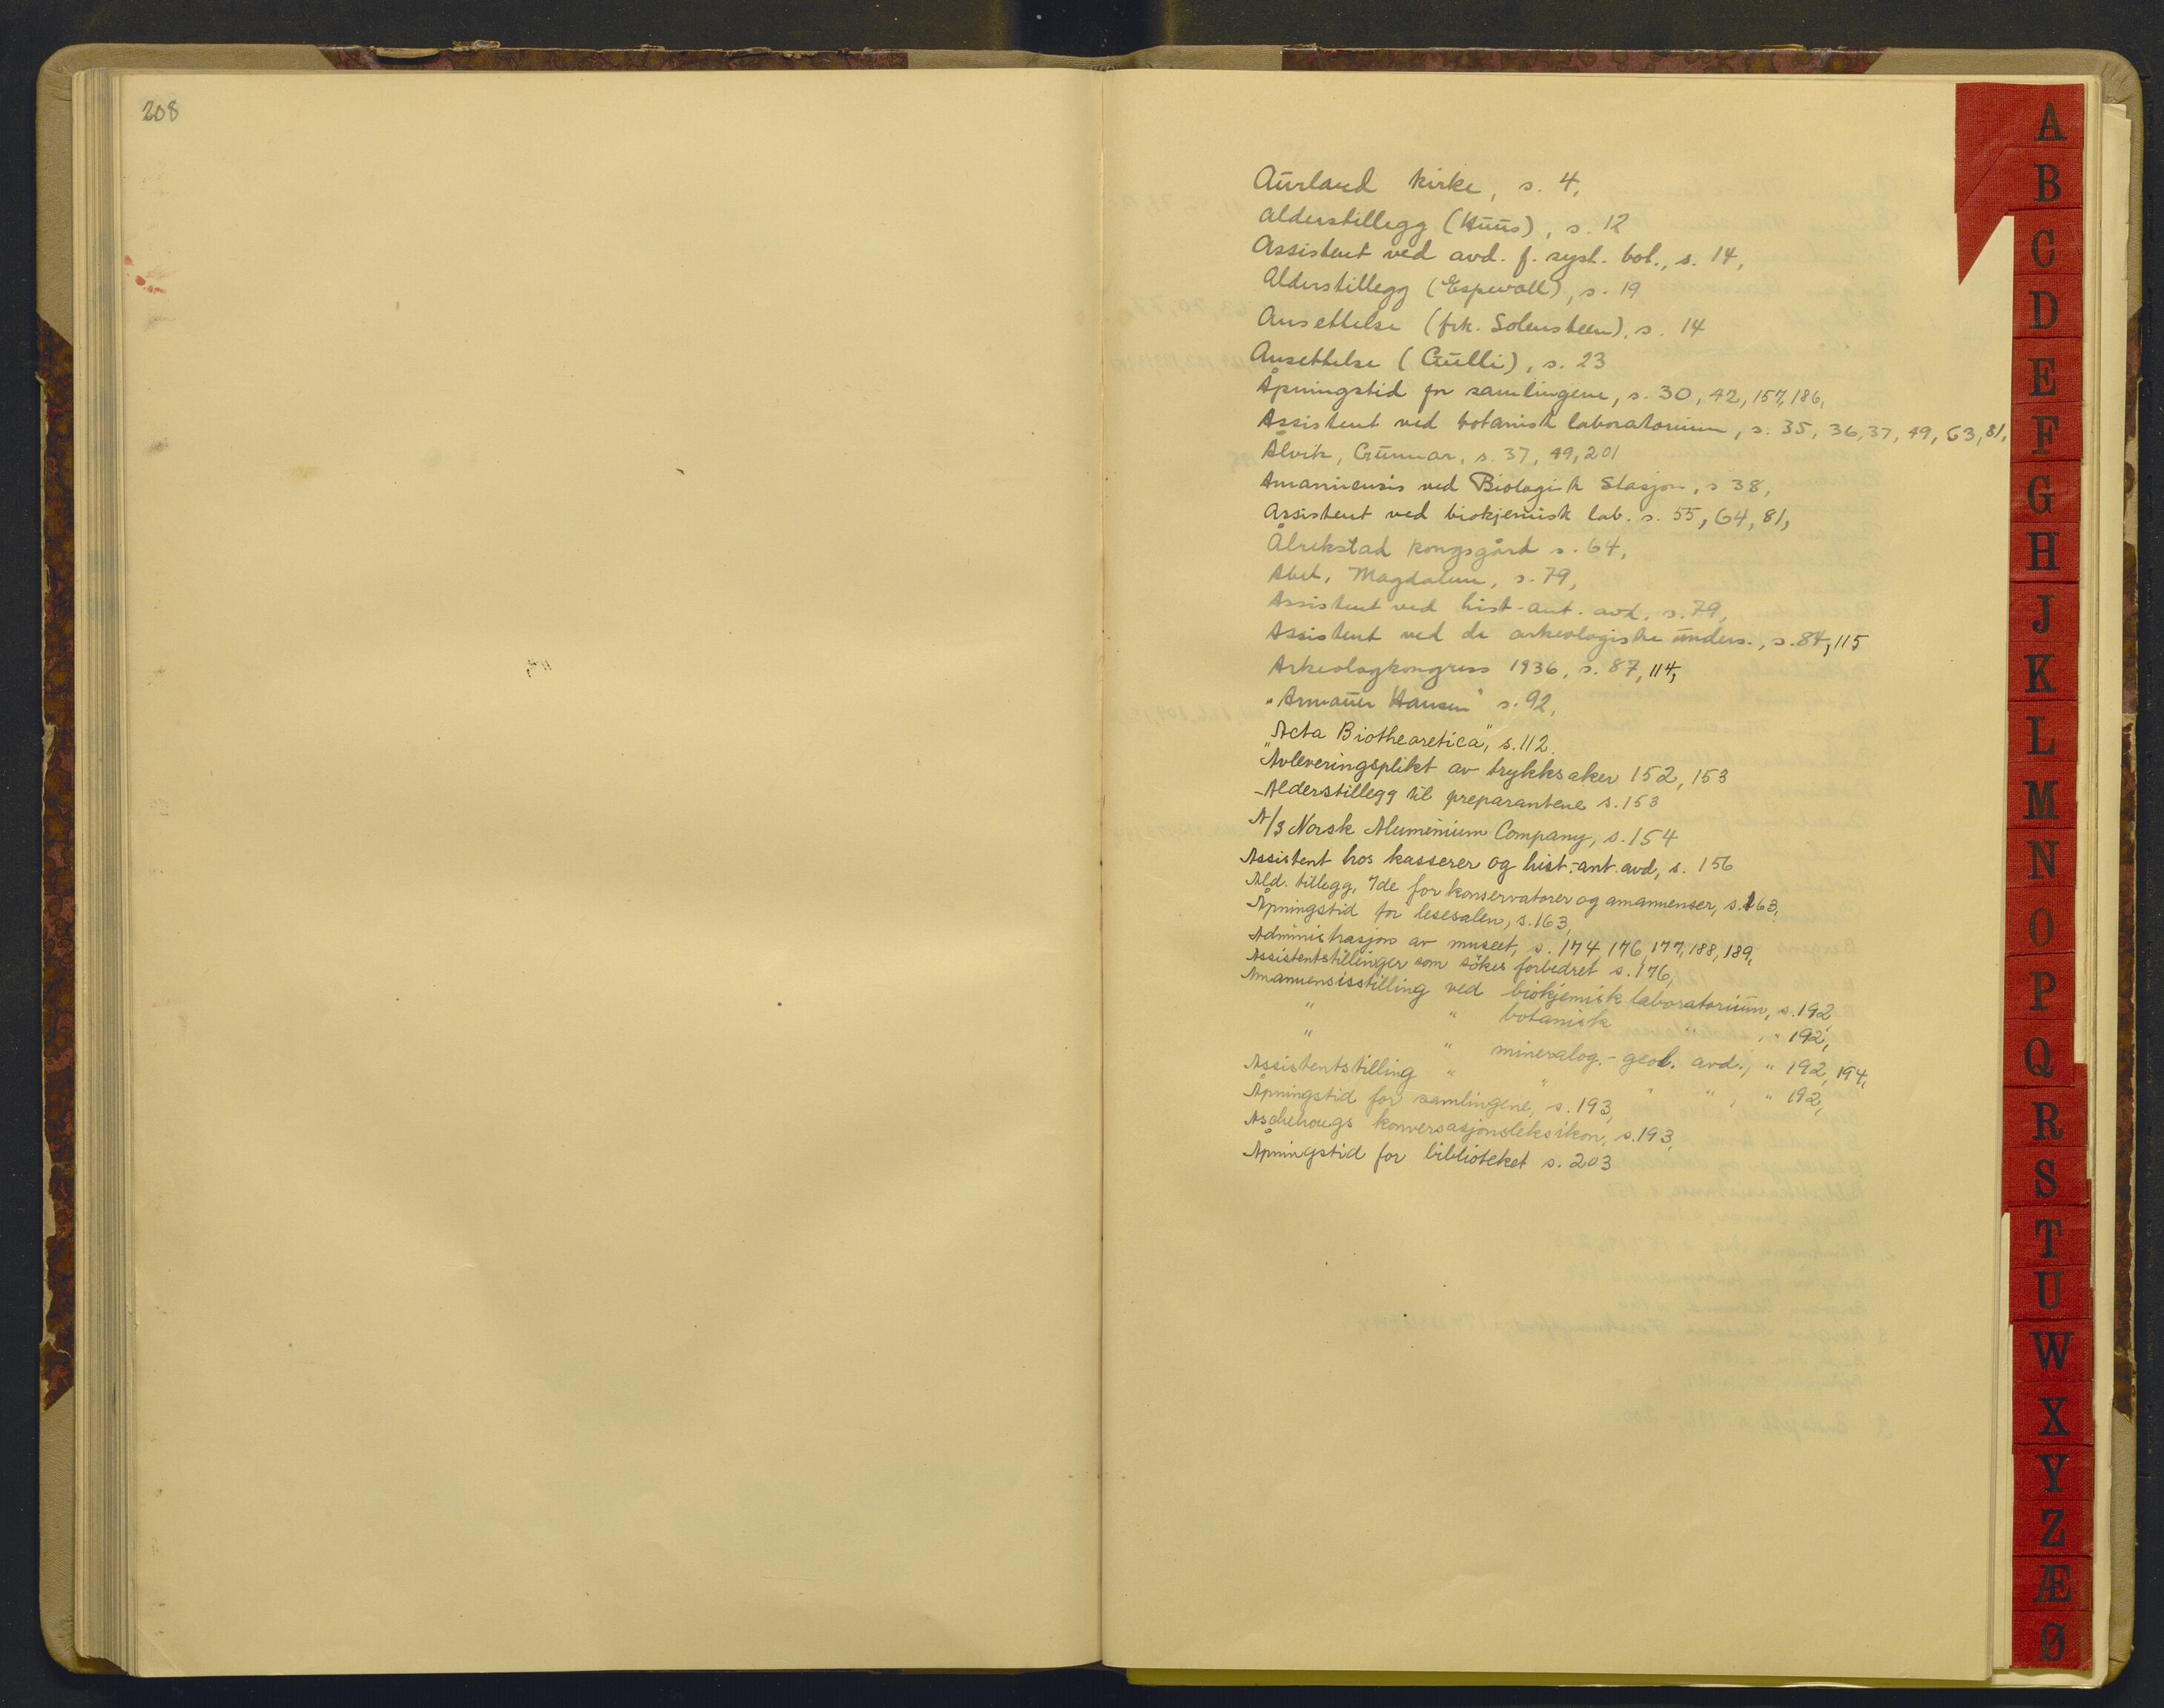 208
Aurland kirke, s. 4,
Alderstillegg (Huus), s. 12
Assistent ved avd. f. syst. bot., s. 14,
Alderstillegg (Espevoll), s. 19
Ansettelse (frk. Solensteen), s. 14
Ansettelse (Gulli), s. 23
Åpningstid for samlingene, s. 30, 42, 157, 186,
Assistent ved botanisk laboratorium, s. 35, 36, 37, 49, 63, 81,
Ålvik, Gunnar, s. 37, 49, 201
Amanuensis ved Biologisk Stasjon, s 38,
Assistent ved biokjemisk lab. s. 55, 64, 81,
Ålrekstad kongsgård s. 64,
Abel, Magdalene, s. 79,
Assistent ved hist-ant. avd. s. 79,
Assistent ved de arkeologiske unders., s. 84, 115
Arkeologkongress 1936, s. 87, 114,
"Armauer Hansen" s. 92,
"Acta Biotheoretica", s. 112.
Avleveringsplikt av trykksaker 152, 153
-Alderstillegg til preparantene s. 153
A/S Norsk Aluminium Company, s. 154
Assistent hos kasserer og hist.-ant. avd, s. 156
Ald. tillegg, 7de for konservatorer og amanuenser, s. 163,
Åpningstid for lesesalen, s. 163,
Administrasjon av museet, s. 174, 176, 177, 188, 189,
Assistentstillinger som sökes forbedret s. 176,
Amanuensisstilling ved biokjemisk laboratorium, s. 192
" " botanisk " , " 192,
" " mineralog.- geol. avd., " 192, 194,
Assistentstilling " " " " , " 192,
Åpningstid for samlingene, s. 193,
Aschehougs konversasjonsleksikon, s. 193,
Åpningstid for biblioteket s. 203
A
B
C
D
E
F
G
H
J
K
L
M
N
O
P
Q
R
S
T
U
W
X
Y
Z
Æ
Ø